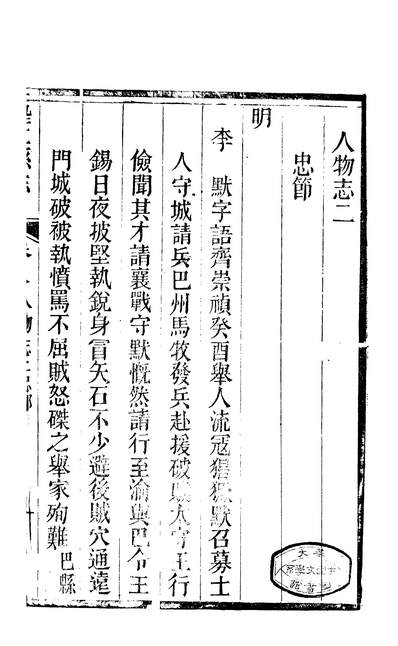 人物志二
忠節
明
李　默字語齊崇禎癸酉舉人流冦猖獗默召募士
人守城請兵巴州馬牧發兵赴援破賊太守王行
儉聞其才請襄戰守默慨然請行至渝與巴令王
錫日夜披堅執銳身冒矢石不少避後賊穴通遠
門城破被執憤罵不屈賊怒磔之舉家殉難 巴縣
人物志